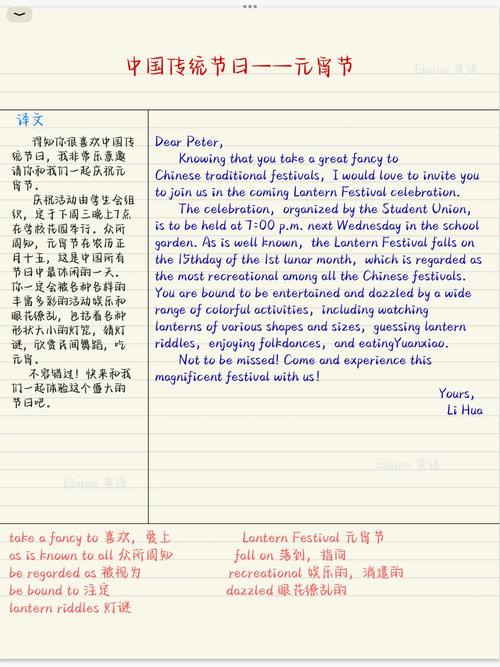 中国传统节日——元宵节
Elaine 英语
译文
得知你很喜欢中国传
统节日，我非常乐意邀
请你和我们一起庆祝元
宵节。
庆祝活动由学生会组
织，定于下周三晚上7点
在学校花园举行。众所
周知，元宵节在农历正
月十五，这是中国所有
节日中最休闲的一天。
你一定会被各种各样的
丰富多彩的活动娱乐和
眼花缭乱，包括看各种
形状大小的灯笼，猜灯
谜，欣赏民间舞蹈，吃
元宵。
不容错过！快来和我
们一起体验这个盛大的
节日吧。
Dear Peter,
Knowing that you take a great fancy to
Chinese traditional festivals, I would love to invite you
to join us in the coming Lantern Festival celebration.
The celebration, organized by the Student Union,
is to be held at 7:00 p.m. next Wednesday in the school
garden. As is well known, the Lantern Festival falls on
the 15thday of the 1st lunar month, which is regarded as
the most recreational among all the Chinese festivals.
You are bound to be entertained and dazzled by a wide
range of colorful activities, including watching
lanterns of various shapes and sizes, guessing lantern
riddles, enjoying folkdances, and eatingYuanxiao.
Not to be missed! Come and experience this
magnificent festival with us!
Yours,
Li Hua
Elaine 英语
Elaine 英语
take a fancy to 喜欢，爱上
as is known to all 众所周知
be regarded as 被视为
be bound to 注定
lantern riddles 灯谜
Lantern Festival 元宵节
fall on 落到，指向
recreational 娱乐的，消遣的
dazzled 眼花缭乱的